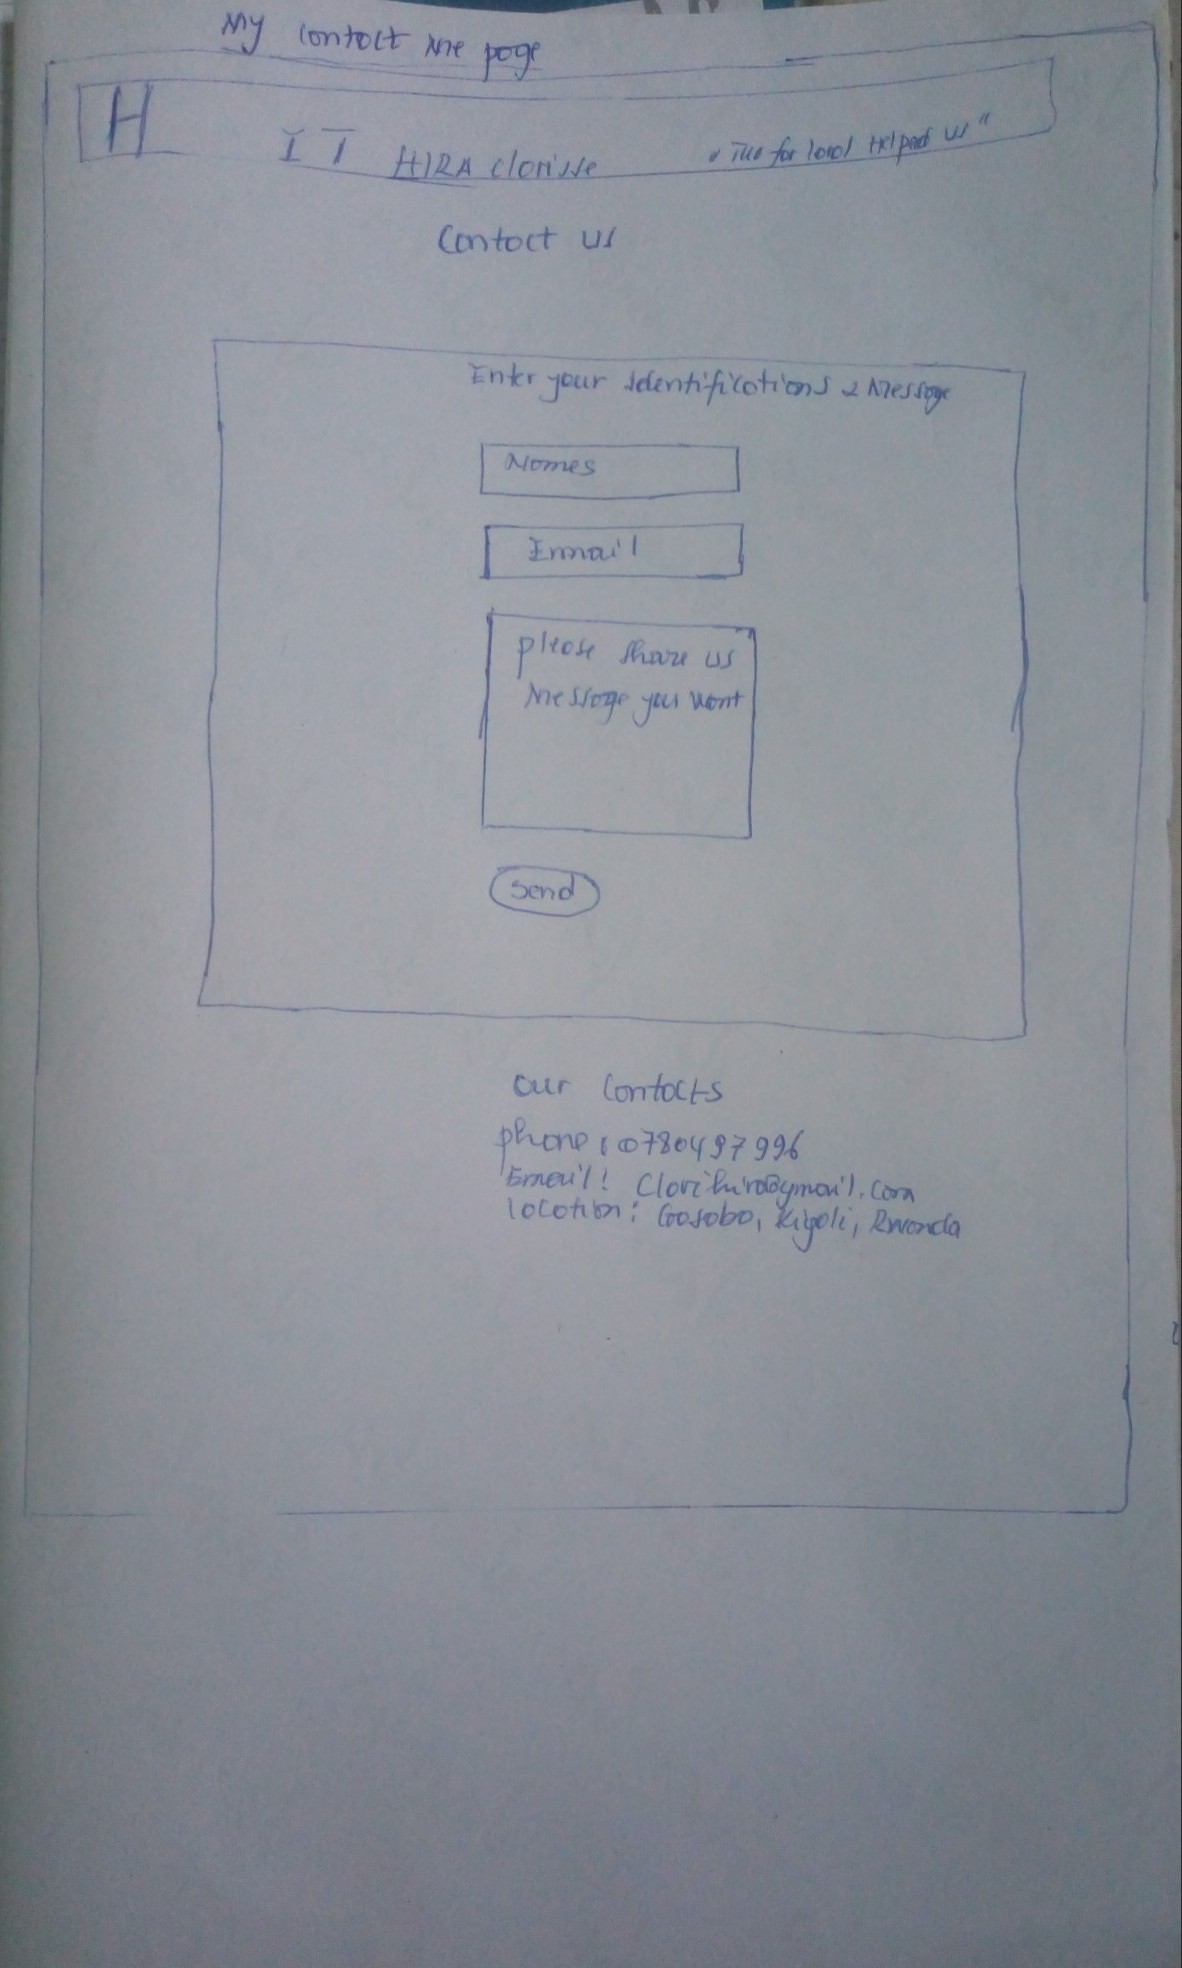 My contact me page
H
IT HIRA clarisse
for
Us"
Contact us
Enter your identifications & Message
Names
Email
please share us
Message you want
Send
our contacts
phone: 0780497996
Email:
location: Gasabo, Kigali, Rwanda